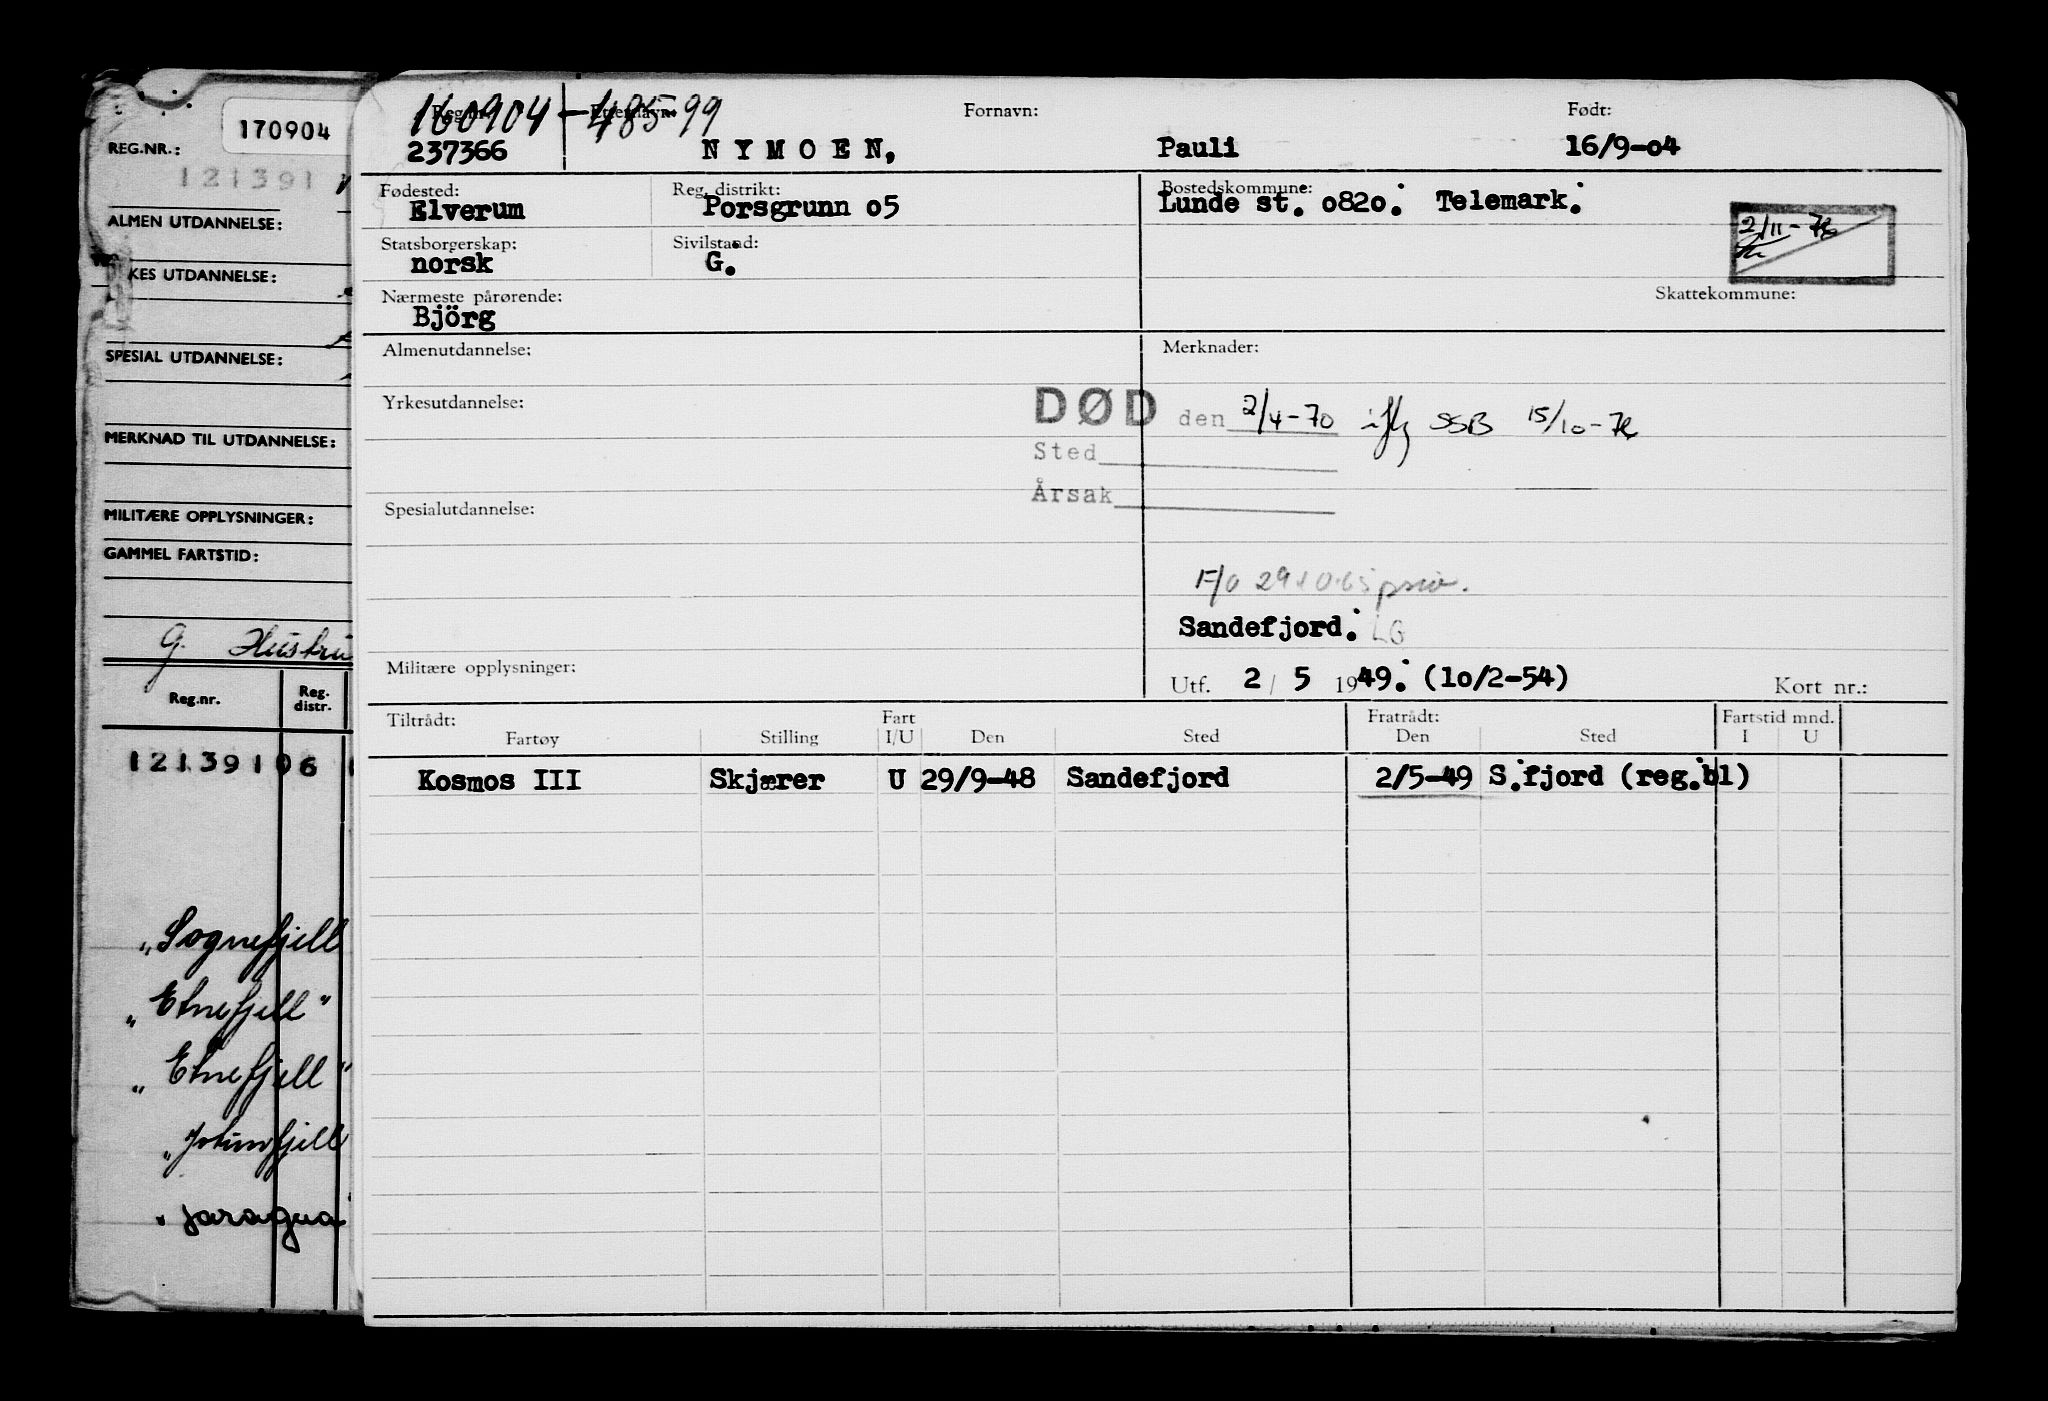 170904
REG.NR.:
121391
ALMEN UTDANNELSE:
KES UTDANNELSE:
SPESIAL UTDANNELSE:
MERKNAD TIL UTDANNELSE:
MILITÆRE OPPLYSNINGER:
GAMMEL FARTSTID:
G. Hustru
Reg.nr. Reg. distr.
12139106
"Sognefjell
"Etnefjell"
"Etnefjell"
"Jotunfjell
" Jaragua
160904-48599
Reg.nr. Etternavn: Fornavn: Født:
237366 NYMOEN, Pauli 16/9-04
Fødested: Reg. distrikt: Bostedskommune:
Elverum Porsgrunn 05 Lunde st. 0820. Telemark.
Statsborgerskap: Sivilstand:
norsk G.
2/11-72
Nærmeste pårørende: Skattekommune:
Björg
Almenutdannelse: Merknader:
Yrkesutdannelse:
DØD den 2/4-70 iflg SSB 15/10-72
Sted
Årsak
Spesialutdannelse:
F/O
Sandefjord. LG
Militære opplysninger:
Utf. 2 / 5 1949. (10/2-54) Kort nr.:
Tiltrådt: Fart Fratrådt: Fartstid mnd.
Fartøy Stilling I/U Den Sted Den Sted I U
Kosmos III Skjærer U 29/9-48 Sandefjord 2/5-49 S.fjord (reg.bl)